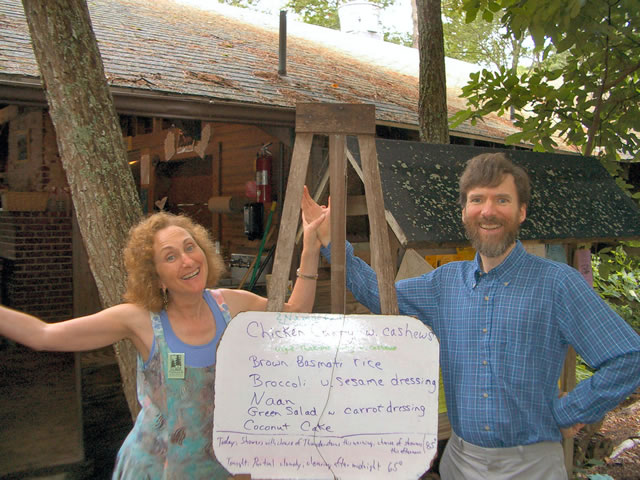 Chicken Curry w. cashews
Brown Basmati rice
Broccoli w. sesame dressing
Naan
Green Salad w carrot dressing
Coconut Cake
Today: Showers with chance of Thunderstorms this morning, chance of showers this afternoon 85°
Tonight: Partial cloudy, clearing after midnight 65°